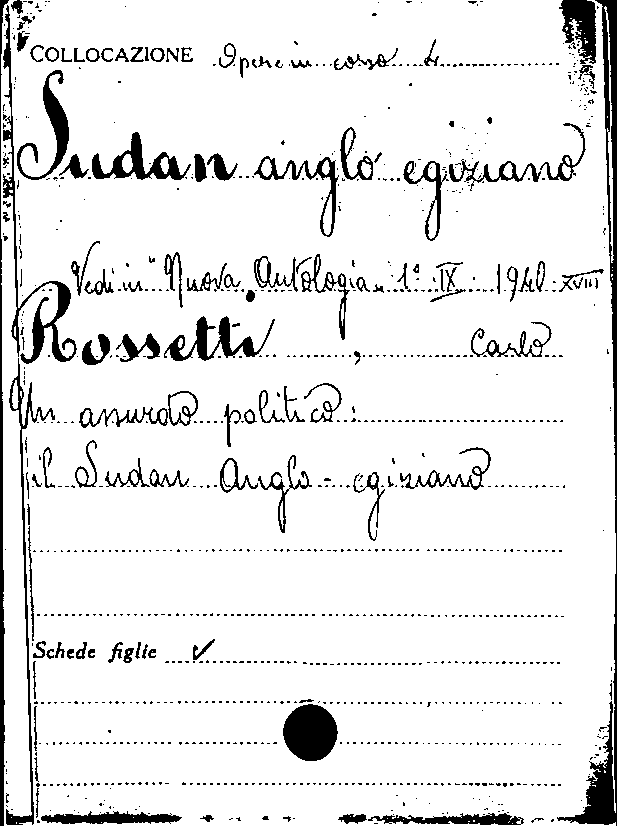 COLLOCAZIONE Opere in corso 4
Sudan anglo egiziano
Vedi in "Nuova Antologia„ 1° IX 1940 XVIII
Rossetti, Carlo
Un assurdo politico:
il Sudan Anglo-egiziano
Schede figlie ✓